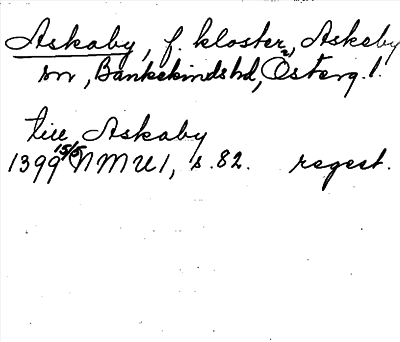 Askaby, f. kloster, Askeby
sn, Bankekinds hd, Österg. l.
till Askaby
1399 15/5 NMU 1, s. 82. regest.